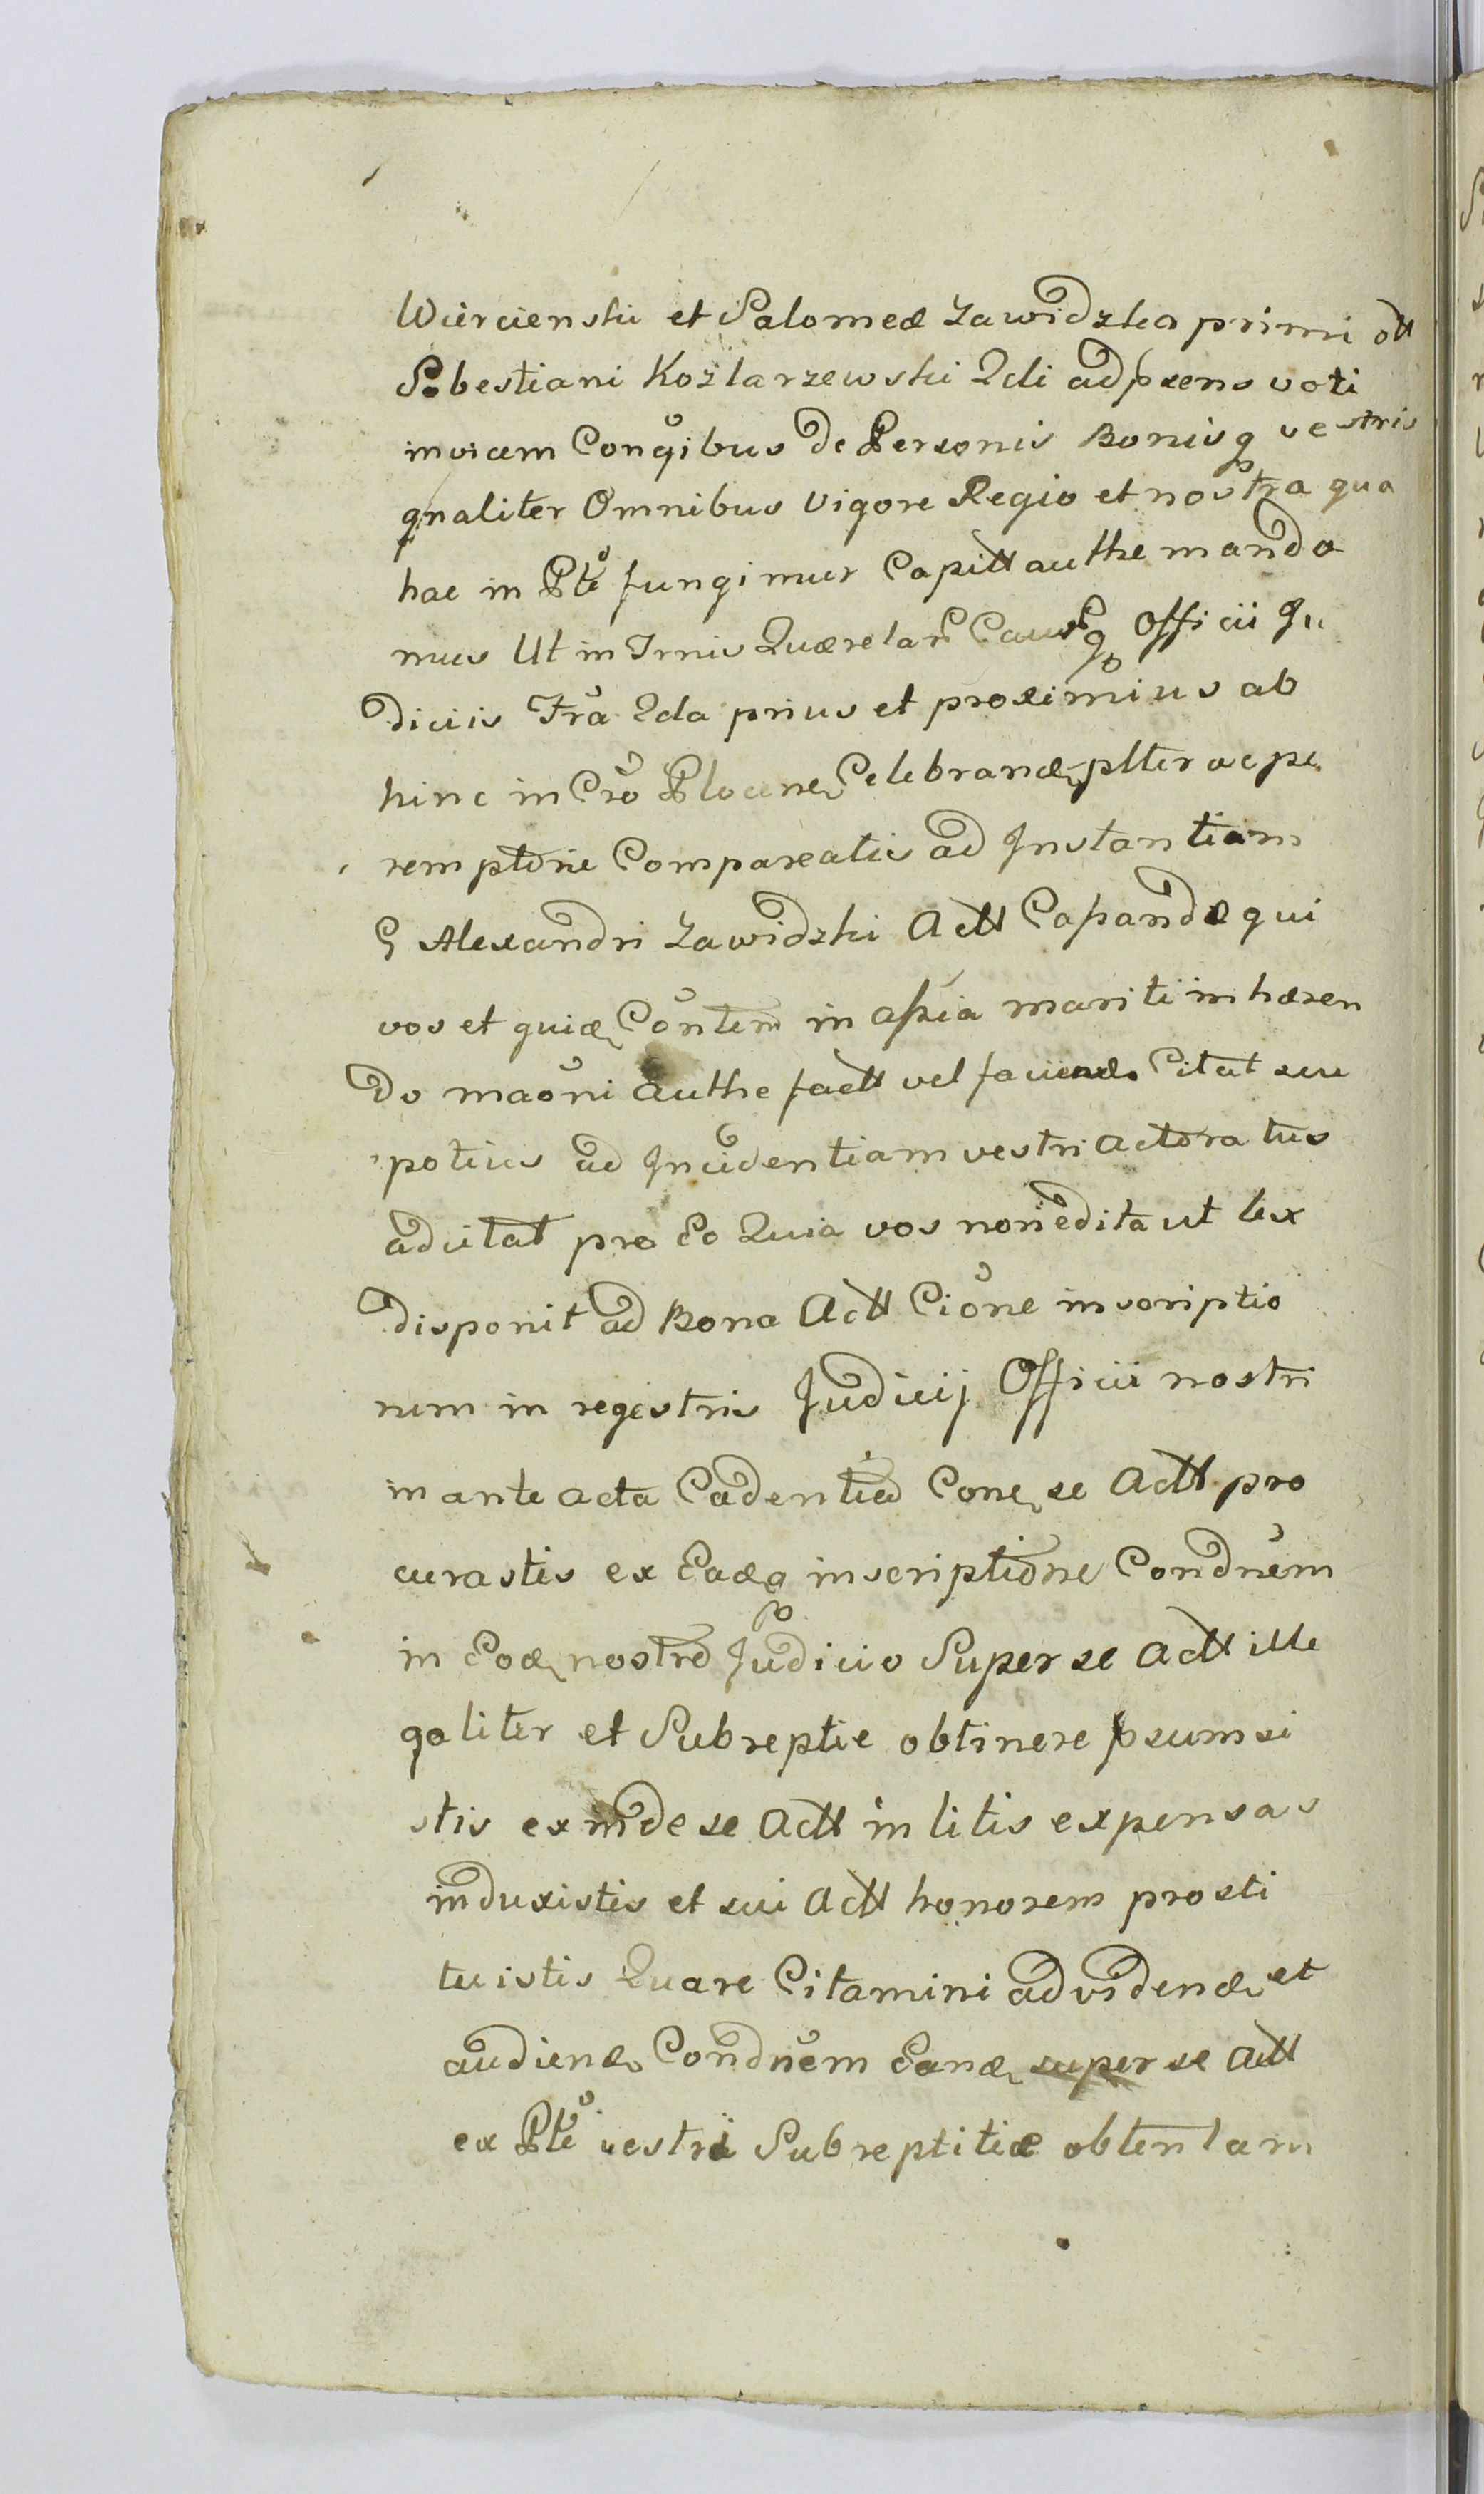 Wiercienski et Salomeæ Zawidzka primi ott
Sebestiani Kozlarzewski 2di ad psens voti
invicem Conqibus de Personis Bonisq vestris
gnaliter Omnibus Vigore Regio et nostra qua
hac in Pte fungimur Capitt authe manda
mus Ut in Trnis Quærelar Causq Officii Ju
diciis Fra 2da prius et proximius ab
hinc in Cro Plocen Celebrand pltter ac pe
remptorie Compareatis ad Instantiam
G Alexandri Zawidzki Actt Capande qui
vos et quid Contem in assia mariti inhæren
do maoni authe factt vel faciend Citat seu
potius ad Incidentiam vestri Actoratus
adcitat pro Eo Quia vos non edita ut lex
disponit ad Bona Actt Cione inscriptio
num in regestris Judicij Officii nostri
in ante acta Cadentia Con se Actt pro
curastis ex Eadq inscriptione Condnem
in Eod nostro Judicio Super se Actt ille
galiter et Subreptie obtinere psumsi
stis ex inde se Actt in litis expensas
induxistis et sui Actt honorem prosti
tuistis Quare Citamini ad vidend et
audiend Condnem Eand super se Actt
ex Pte vestri Subreptitiæ obtentam